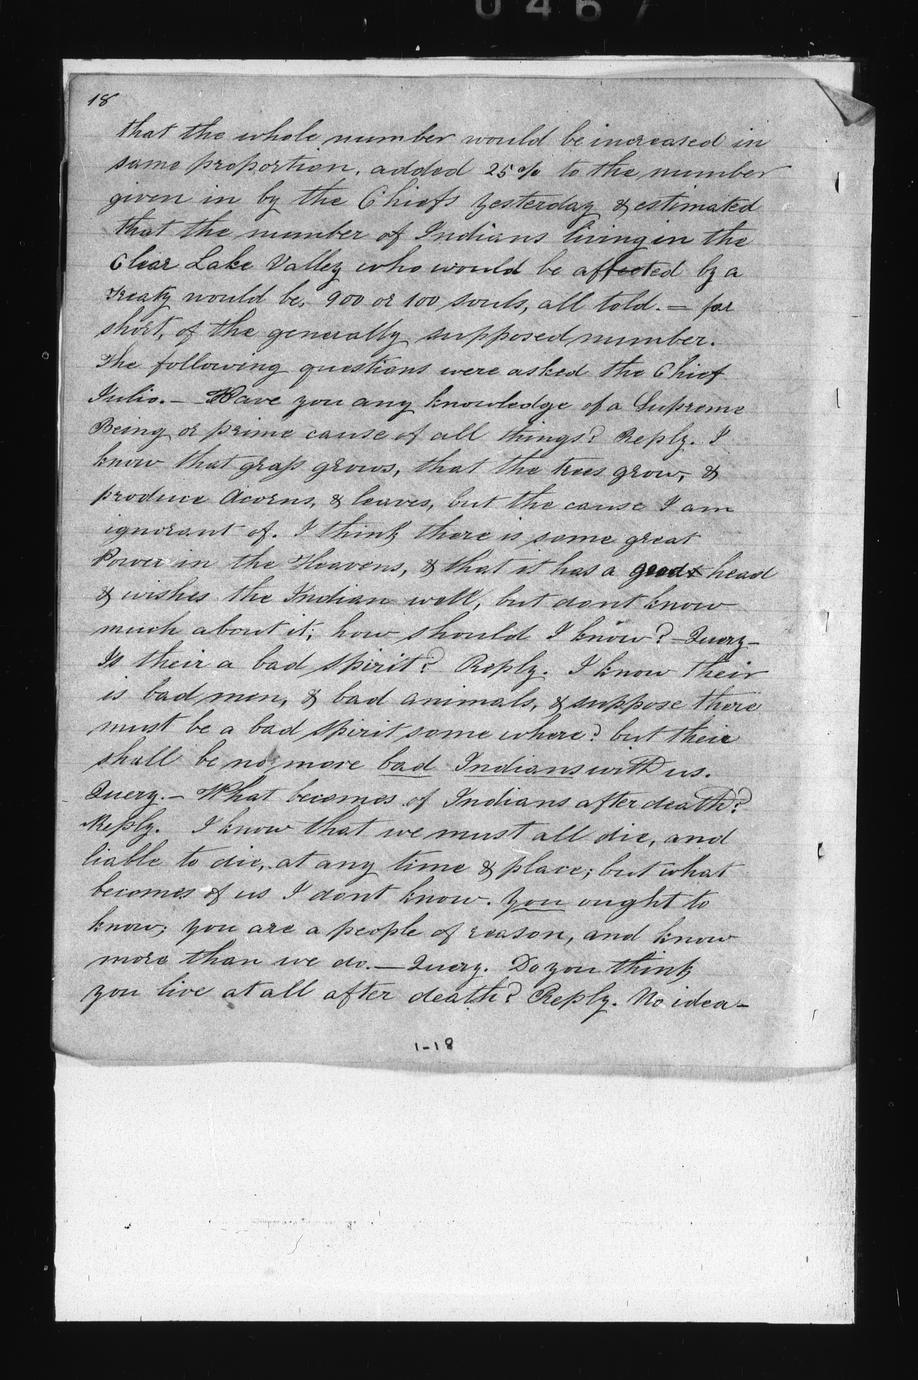 0467
18
that the whole number would be increased in
same proportion, added 25% to the number
given in by the Chiefs yesterday & estimated
that the number of Indians living in the
Clear Lake Valley who would be affected by a
treaty would be, 900 or 100 souls, all told. — far
short, of the generally supposed number.
The following questions were asked the Chief
Julio. — Have you any knowledge of a Supreme
Being or prime cause of all things? Reply. I
know that grass grows, that the trees grow, &
produce Acorns, & leaves, but the cause I am
ignorant of. I think there is some great
Power in the Heavens, & that it has a good head
& wishes the Indian well, but dont know
much about it; how should I know? — Query —
Is their a bad spirit? Reply. I know their
is bad men, & bad animals, & suppose there
must be a bad spirit some where? but their
shall be no more bad Indians with us.
Query. — What becomes of Indians after death?
Reply. I know that we must all die, and
liable to die, at any time & place; but what
becomes of us I dont know. you ought to
know; you are a people of reason, and know
more than we do. — Query. Do you think
you live at all after death? Reply. No idea —
1-18